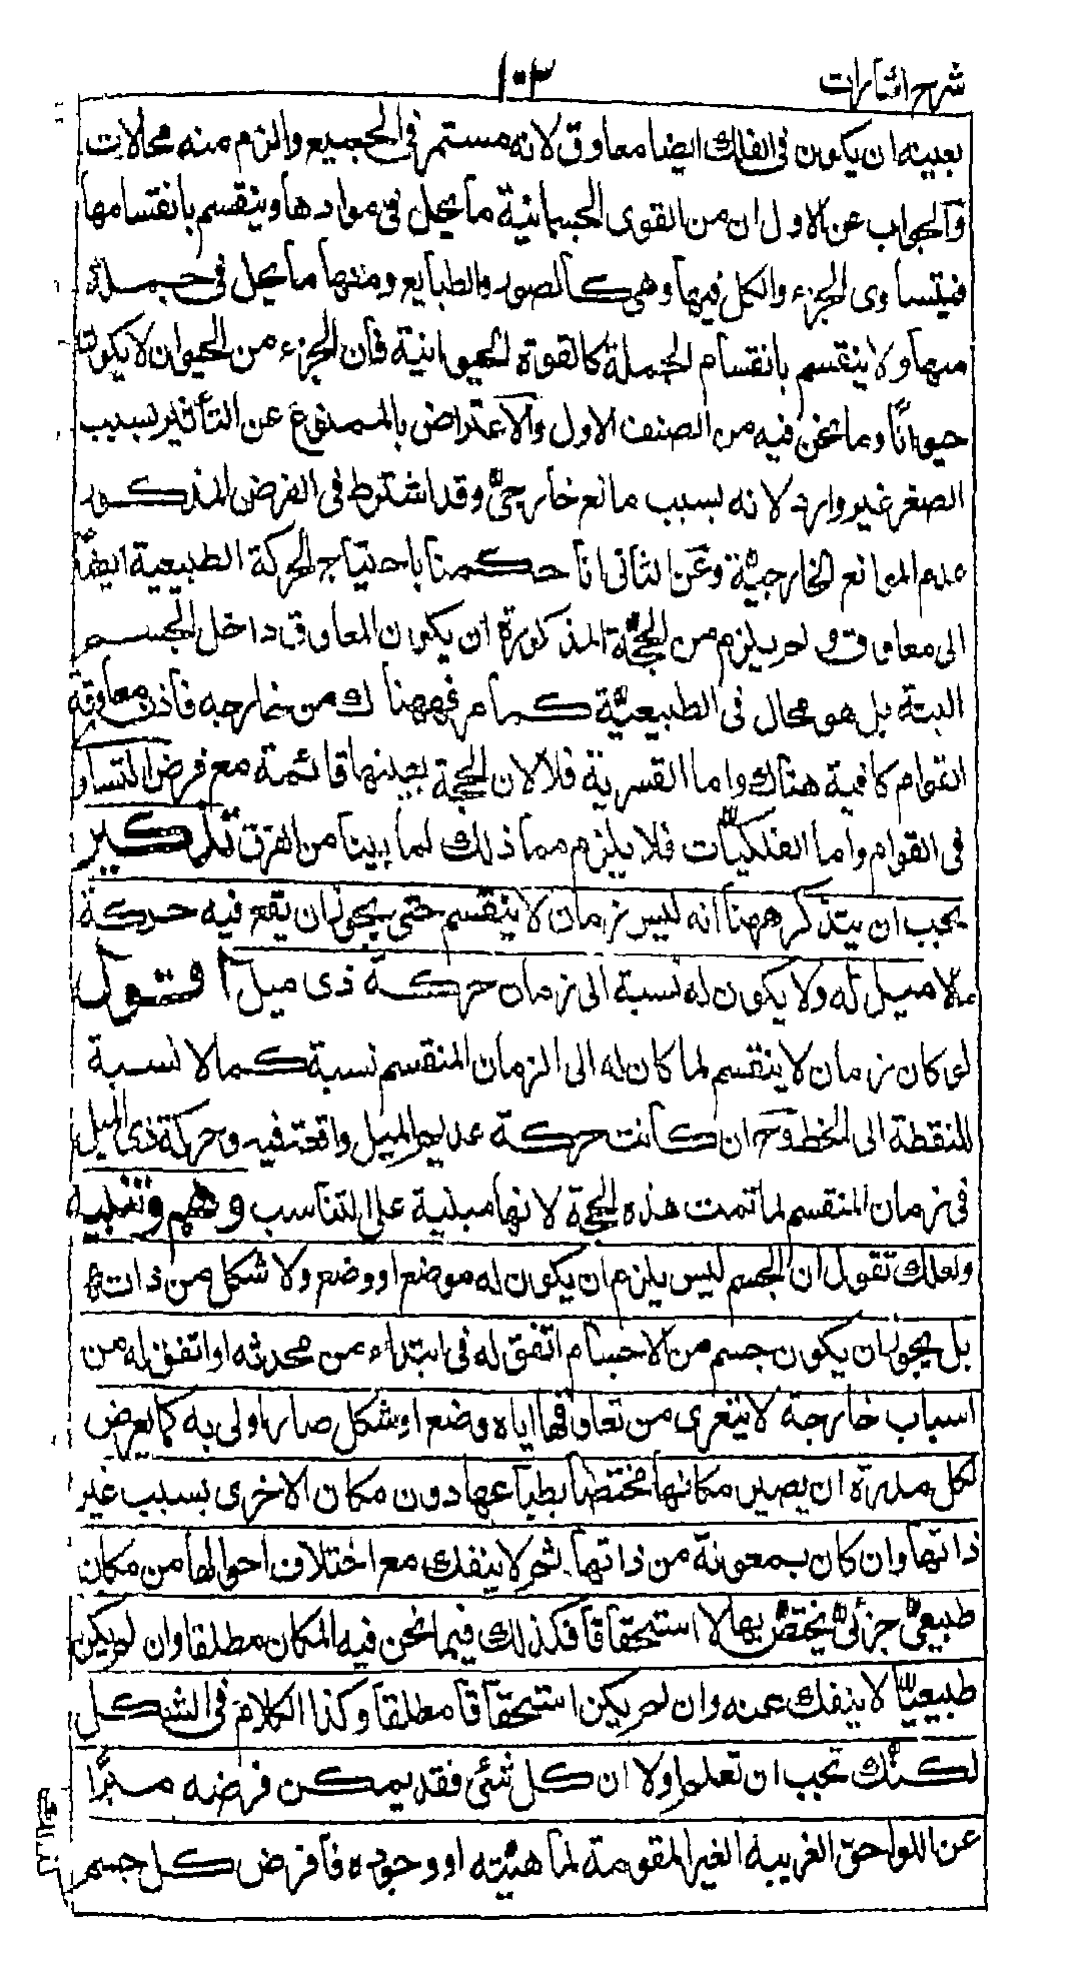 شرح اشارات
١٠٣
بعينه ان يكون فى الفلك ايضا معاوق لانه مستمر فى الجميع والزم منه محالات
والجواب عن الاول ان من القوى الجسمانية ما يحل فى موادها وينقسم بانقسامها
فيتساوى الجزء والكل فيها وهى كالصور والطبايع ومنها ما يحل فى جملة
منها ولا ينقسم بانقسام الجملة كالقوة الحيوانية فان الجزء من الحيوان لا يكون
حيوانًا وما نحن فيه من الصنف الاول والاعتراض بالممنوع عن التأثير بسبب
الصغر غير وارد لانه بسبب مانع خارجىّ وقد اشترط فى الفرض المذكور
عدم الموانع الخارجيّة وعن الثانى انا حكمنا باحتياج الحركة الطبيعية ايضًا
الى معاوق ولم يلزم من الحجّة المذكورة ان يكون المعاوق داخل الجسم
البتة بل هو محال فى الطبيعيّة كما مر فههنا لك من خارجه فاذن معاوقة
القوام كافية هناك واما القسرية فلا لان الحجة بعينها قائمة مع فرض التساو
فى القوام واما الفلكيّات فلا يلزم مما ذلك لما بينا من الفرق تذكير
يجب ان يتذكر ههنا انه ليس زمان لا ينقسم حتى يجوز ان يقع فيه حركة
ما لا ميل له ولا يكون له نسبة الى زمان حركة ذى ميل اقول
لو كان زمان لا ينقسم لما كان له الى الزمان المنقسم نسبة كما لا نسبة
للنقطة الى الخط وح ان كانت حركة عديم الميل واقعة فيه وحركة ذى الميل
فى زمان المنقسم لما تمت هذه الحجة لانها مبنية على التناسب وهم وتنبيه
ولعلك تقول ان الجسم ليس يلزم ان يكون له موضع او وضع ولا شكل من ذاته
بل يجوز ان يكون جسم من الاجسام اتفق له فى ابتداء من محدثه او اتفق له من
اسباب خارجة لا يتعرى من تعاوقها اياه وضع او شكل صار اولى به كما يعرض
لكل مدرة ان يصير مكانها مختصًا بطباعها دون مكان الاخرى بسبب غير
ذاتها وان كان بمعونة من ذاتها ثم لا ينفك مع اختلاف احوالها من مكان
طبيعىّ جزئىّ يختصّ بها لا استحقاقا فكذلك فيما نحن فيه المكان مطلقا وان لم يكن
طبيعيًّا لا ينفك عنه وان لم يكن استحقاقا مطلقا وكذا الكلام فى الشكل
لكنّك يجب ان تعلم اولا ان كل شئى فقد يمكن فرضه مبرّا
عن اللواحق الغريبة الغير المقومة لماهيّته او وجوده فافرض كل جسم